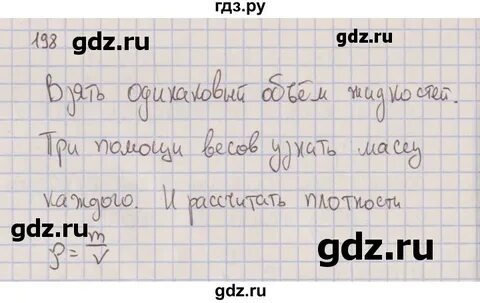 гдз.ру
198
gdz.ru gdz.ru
Взять одинаковый объём жидкостей.
gdz.ru
При помощи весов узнать массу
каждого. И рассчитать плотности
gdz.ru gdz.ru
ρ = m/V
gdz.ru